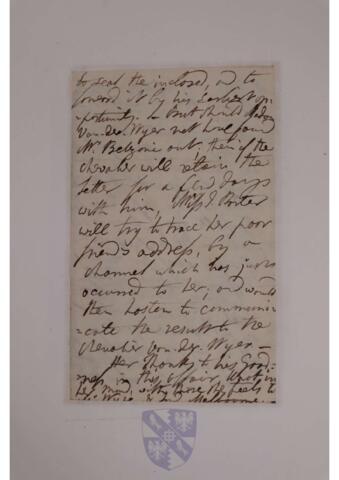 to seal the inclosed, and to
forward it by his earliest op-
-portunity. But should Madam
Van-der-Wyer not have found
Mr. Belzoni out; then if the
Chevalier will retain the
letter for a few days
with him, Miss J Porter
will try to trace her poor
friend's address, by a
channel which has just
occurred to her; and would
then hasten to communi-
-cate the result to the
Chevalier van-der-Wyer —
Her thanks to his Good-
-ness in this affair
her mind, with those she feels to
Melbourne.